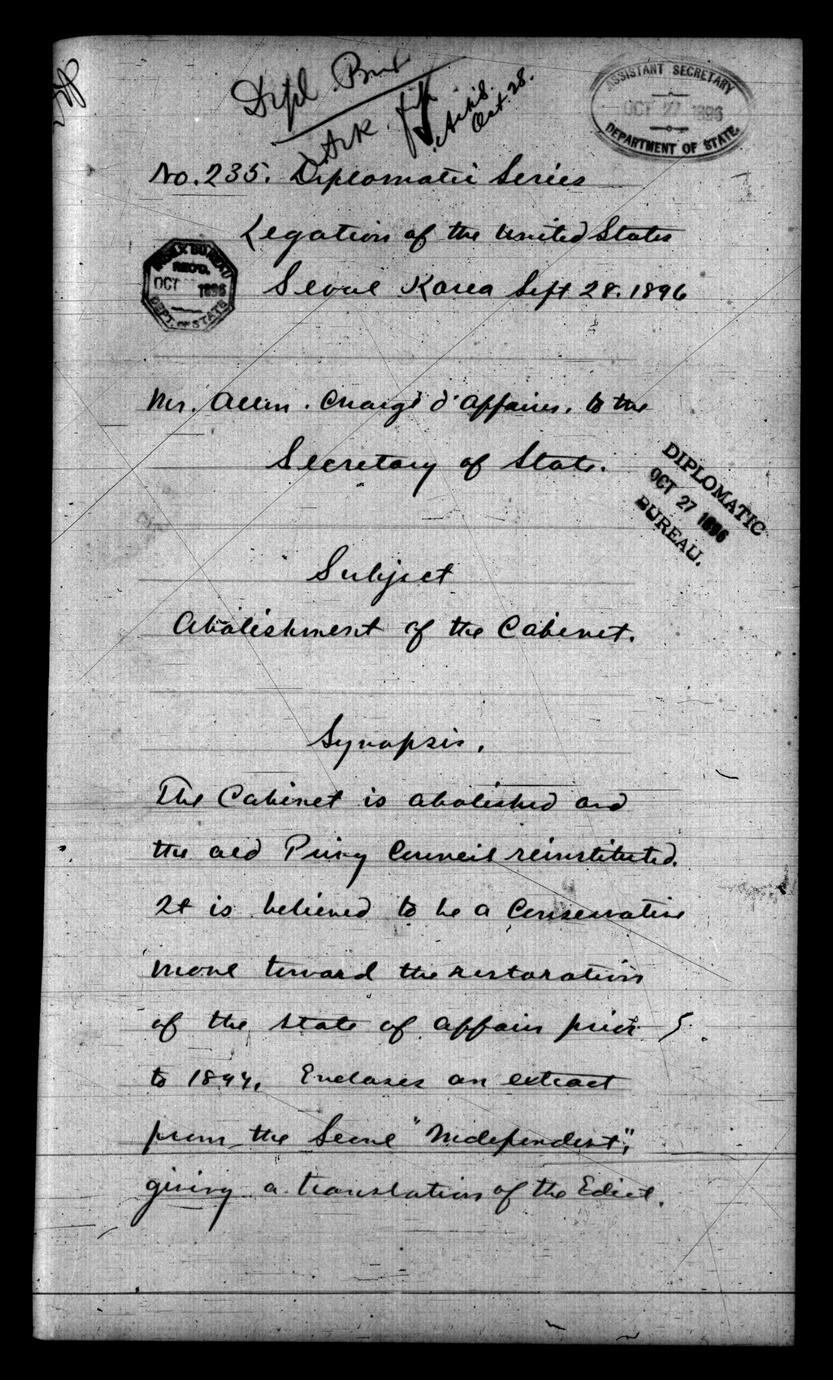 Dipl. Bu
Ack
Oct. 28.
ASSISTANT SECRETARY
OCT 27 1896
DEPARTMENT OF STATE.
No. 235. Diplomatic Series
Legation of the United States
INDEX BUREAU
REC'D.
OCT 1896
DEPT. OF STATE
Seoul Korea Sept 28. 1896
Mr. Allen. Chargé d'affaires. to the
Secretary of State.
DIPLOMATIC
OCT 27 1896
BUREAU.
Subject
Abolishment of the Cabinet.
Synopsis.
The Cabinet is abolished and
the old Privy Council reinstituted.
It is believed to be a Conservative
move toward the restoration
of the state of affairs prior
to 1894. Encloses an extract
from the Seoul "Independent",
giving a translation of the Edict.